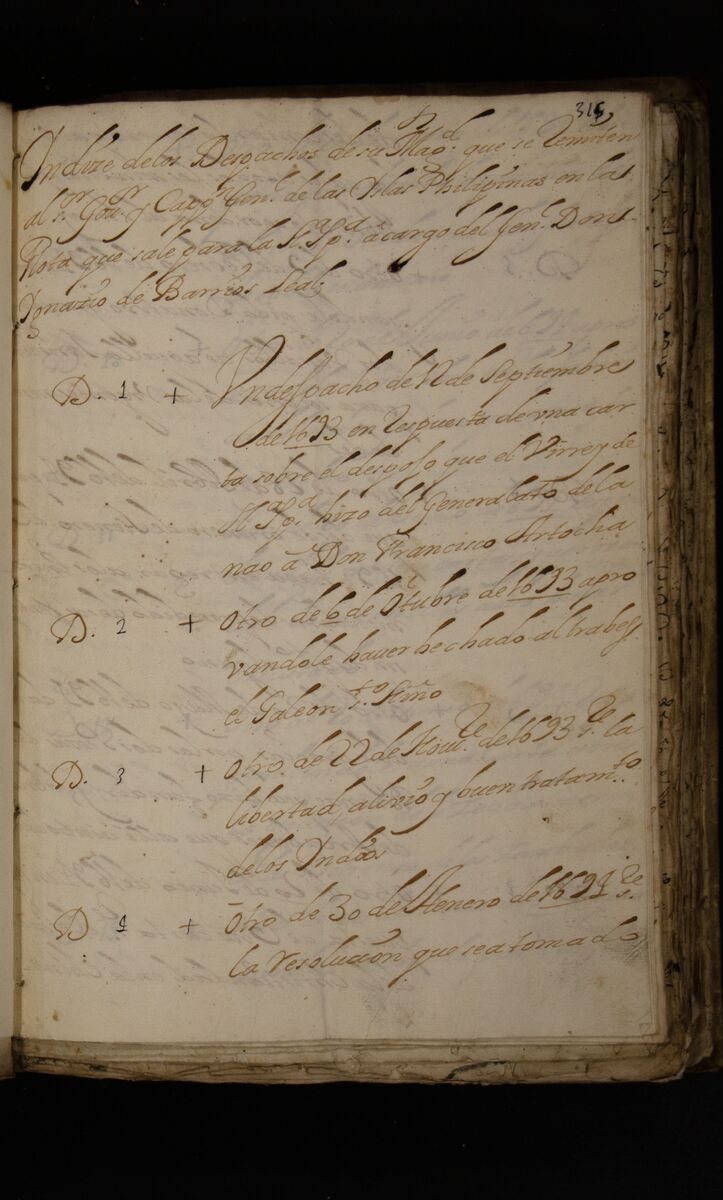 315
Indize delos Despachos de su Magd. que se Remiten
al sr. Gour. y Capn. Genl. de las Yslas Philipinas en las
Flota que sale para la Na. Spa. a cargo del Genl. Dons
Ignazio de Barrios Leal;
D. 1 + Vn despacho de 12 de Septiembre
de 1693 en Respuesta de vna car
ta sobre el despojo que el Virrey de
Na. Spa. hizo del Generalato de la
nao â Don Francisco Artochia
D. 2 + otro de 6 de Otubre de 1693 apro
vandole hauer hechado al trabes
el Galeon sto. Niño
D. 3 + otro de 22 de Noure. de 1693 Re. la
libertad, alivio y buen tratamto.
delos Indios
D 4 + otro de 30 de Henero de 1694 Re.
la resolucion que sea tomado